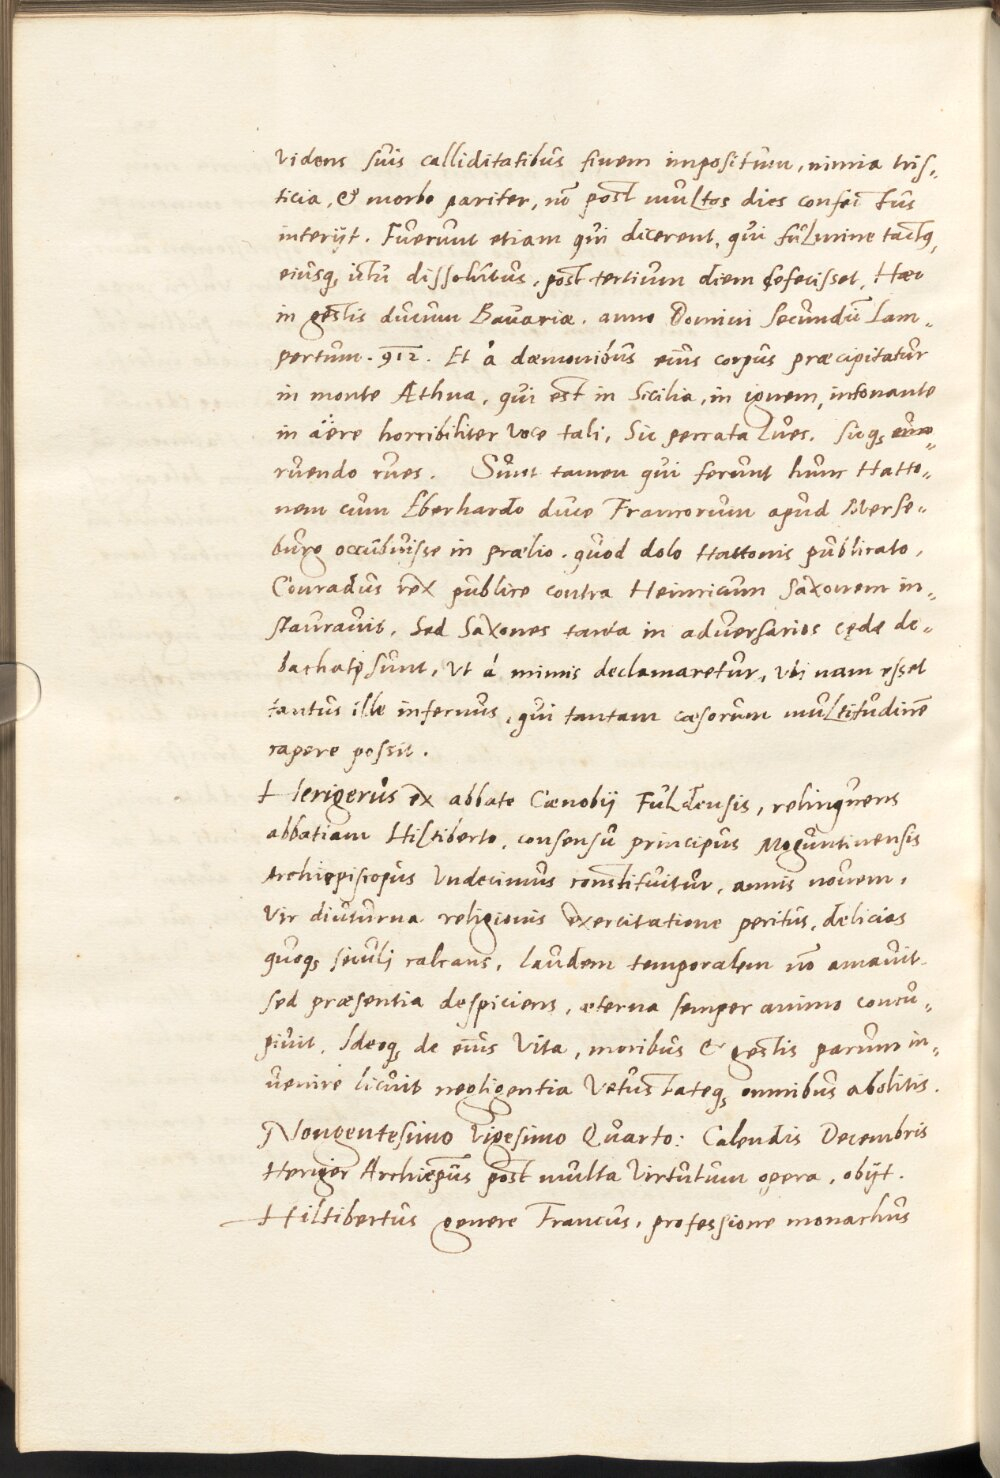 videns suis calliditatibus finem impositum, nimia tris-
ticia, & morbo pariter, nō post multos dies confectus
interijt. Fuerunt etiam qui dicerent, qui fulmine tactꝯ,
eiusqꝫ ictu dissolutus, post tertium diem defecisset, Hæc
in gestis ducum Bavariæ. anno Domini secundū Lam-
pertum. 912. Et á dæmonibus eius corpus præcipitatur
in monte Æthna, qui est in Sicilia, in ignem, intonante
in äere horribiliter voce tali, Sic peccata lues. sicqꝫ
ruendo rues. Sunt tamen qui ferunt hunc Hatto-
nem cum Eberhardo duce Francorum apud Merse-
burg occubuisse in prælio. quod dolo Hattonis publicato,
Conradus rex publice contra Heinricum Saxonem in-
stauravit, Sed Saxones tanta in adversarios cęde de-
bachati sunt, ut á mimis declamaretur, ubi nam esset
tantus ille infernus, qui tantam cæsorum multitudinē
rapere possit.
Herigerus ex abbate Cænobij Fuldensis, relinquens
abbatiam Hiltiberto, consensu principus Moguntinensis
Archiepiscopus undecimus constituitur, annis novem,
Vir diuturna religionis exercitatione peritus, delicias
quoqꝫ seculj calcans, laudem temporalem nō amavit
sed præsentia despiciens, æterna semper animo concu-
pivit, Ideoqꝫ de eius vita, moribus & gestis parum in-
venire licuit negligentia vetustateqꝫ omnibus abolitis.
Nongentesimo vigesimo Quarto: Calendis Decembris
Heriger Archiepūs post multa virtutum opera, obijt.
Hiltibertus genere Francus, professione monachus